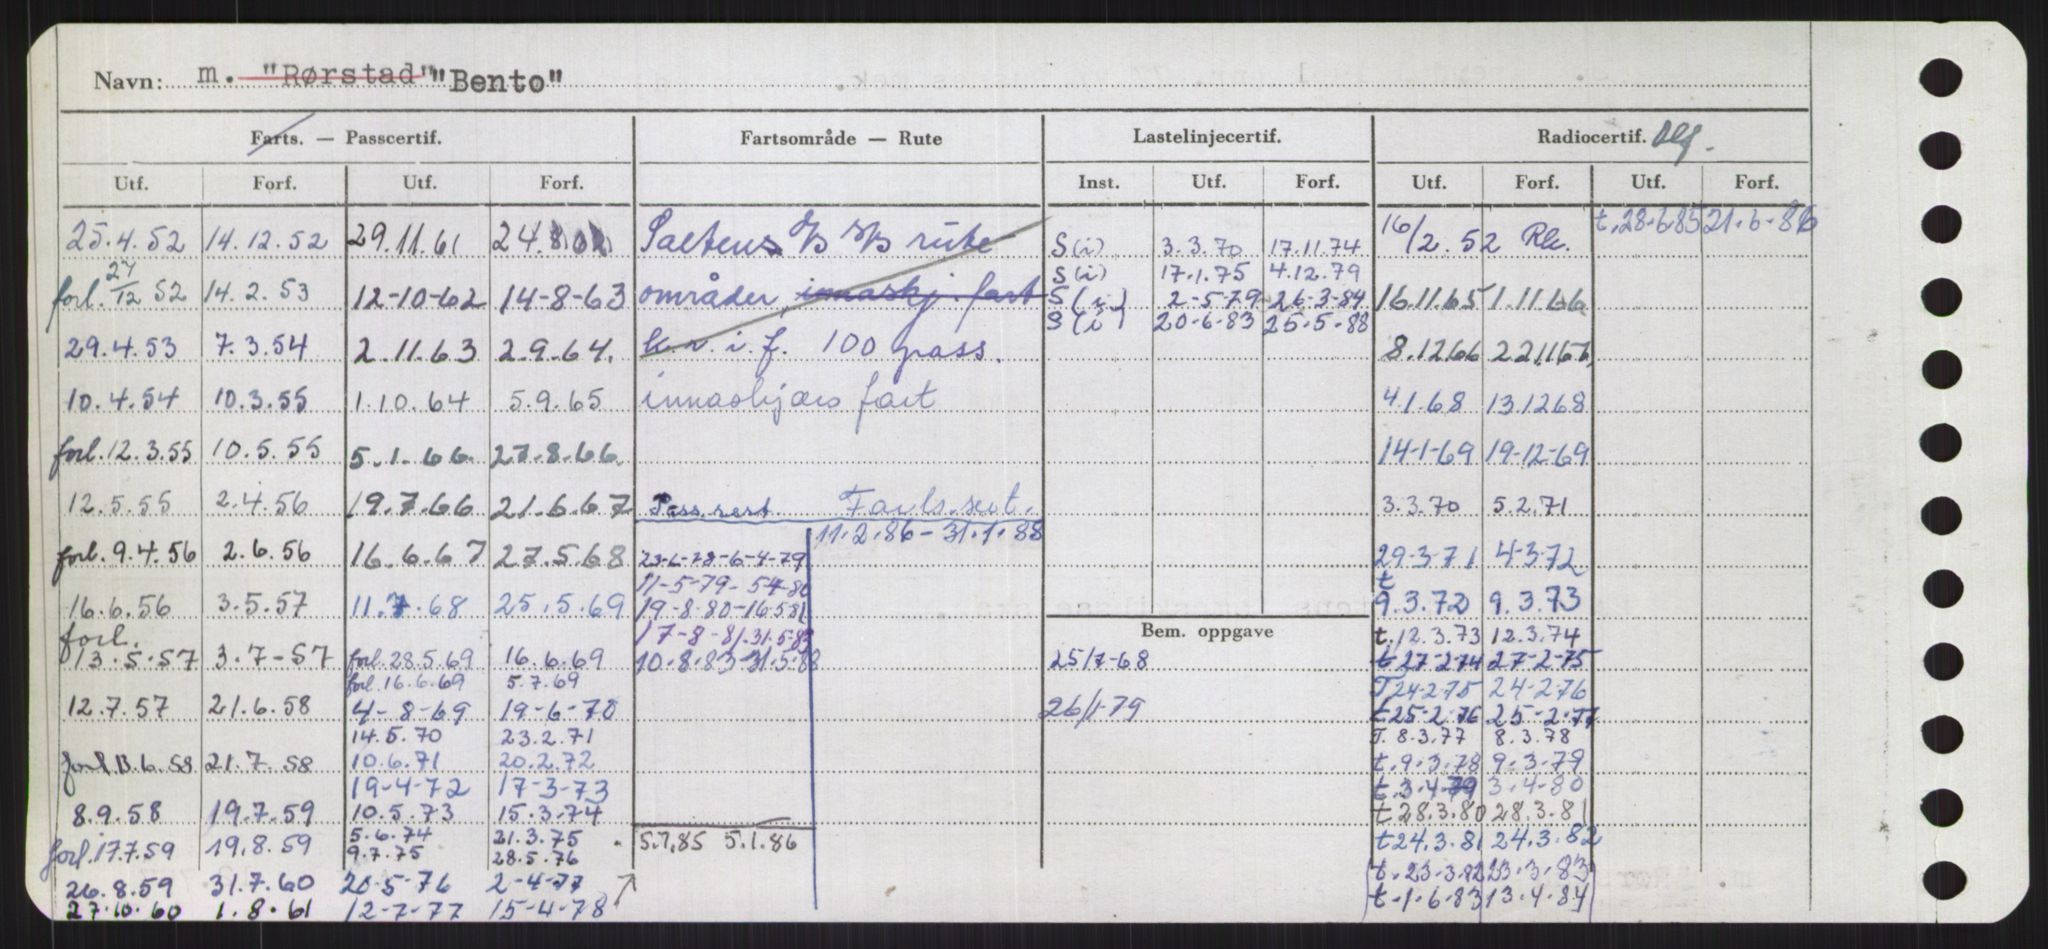 Navn: m. "Rørstad" "Bento"
Farts. — Passcertif. Fartsområde — Rute Lastelinjecertif. Radiocertif.
Utf. Forf. Utf. Forf. Inst. Utf. Forf. Utf. Forf. Utf. Forf.
25.4.52 14.12.52 29.11.61 Saltens D/S rute S(i) 3.3.70 17.11.74 16/2.52 t.28-6-85 21-6-86
S(i) 17.1.75 4.12.79
forl. 27/12 52 14.2.53 12-10-62 14-8-63 områder, innaskj. fart S(i) 2-5-79 26-3-84 16.11.65 1.11.66
S(i) 20-6-83 25-5-88
29.4.53 7.3.54 2.11.63 2.9.64. k.v.i.f. 100 pass. 8.12.66 22.11.67
10.4.54 10.3.55 1.10.64 5.9.65 innaskjærs fart 4.1.68 13.12.68
forl. 12.3.55 10.5.55 5.1.66 27.8.66 14-1-69 19-12-69
12.5.55 2.4.56 19.7.66 21.6.67 Pass.sert. Farts.sert. 3.3.70 5.2.71
11.2.86 - 31.1.88
forl. 9.4.56 2.6.56 16.6.67 27.5.68 23-6-78-6-4-79 29-3-71 4-3-72
11-5-79-5-4-80
16.6.56 3.5.57 11.7.68 25.5.69 19-8-80-16.5.81 t 9.3.72 9.3.73
17-8-81.31.5.83 t.12.3.73 12.3.74
Bem. oppgave
forl. 13.5.57 3.7-57 forl. 28.5.69 16.6.69 10.8.83-31.5.88 25/7-68 t 27-2-74 27-2-75
forl. 16.6.69 5.7.69 T 24-2-75 24-2-76
12.7.57 21.6.58 4-8-69 19-6-70 26/1-79 t 25-2-76 25-2-77
14.5.70 23.2.71 T. 8.3.77 8.3.78
forl 13.6.58 21.7.58 10.6.71 20.2.72 t.9.3.78 9.3.79
19-4-72 17-3-73 t.3.4.79 3.4-80
8.9.58 19.7.59 10.5.73 15.3.74 t 28.3.80 28.3.81
forl. 17.7.59 19.8.59 5.6.74 31.3.75 5.7.85 5.1.86 t 24.3.81 24.3.82
9.7.75 28.5.76
26.8.59 31.7.60 20-5-76 2-4-77 t.23-3.82 23.3.83
27.10.60 1.8.61 12-7-77 15-4-78 t.1.6.83 13.4.84